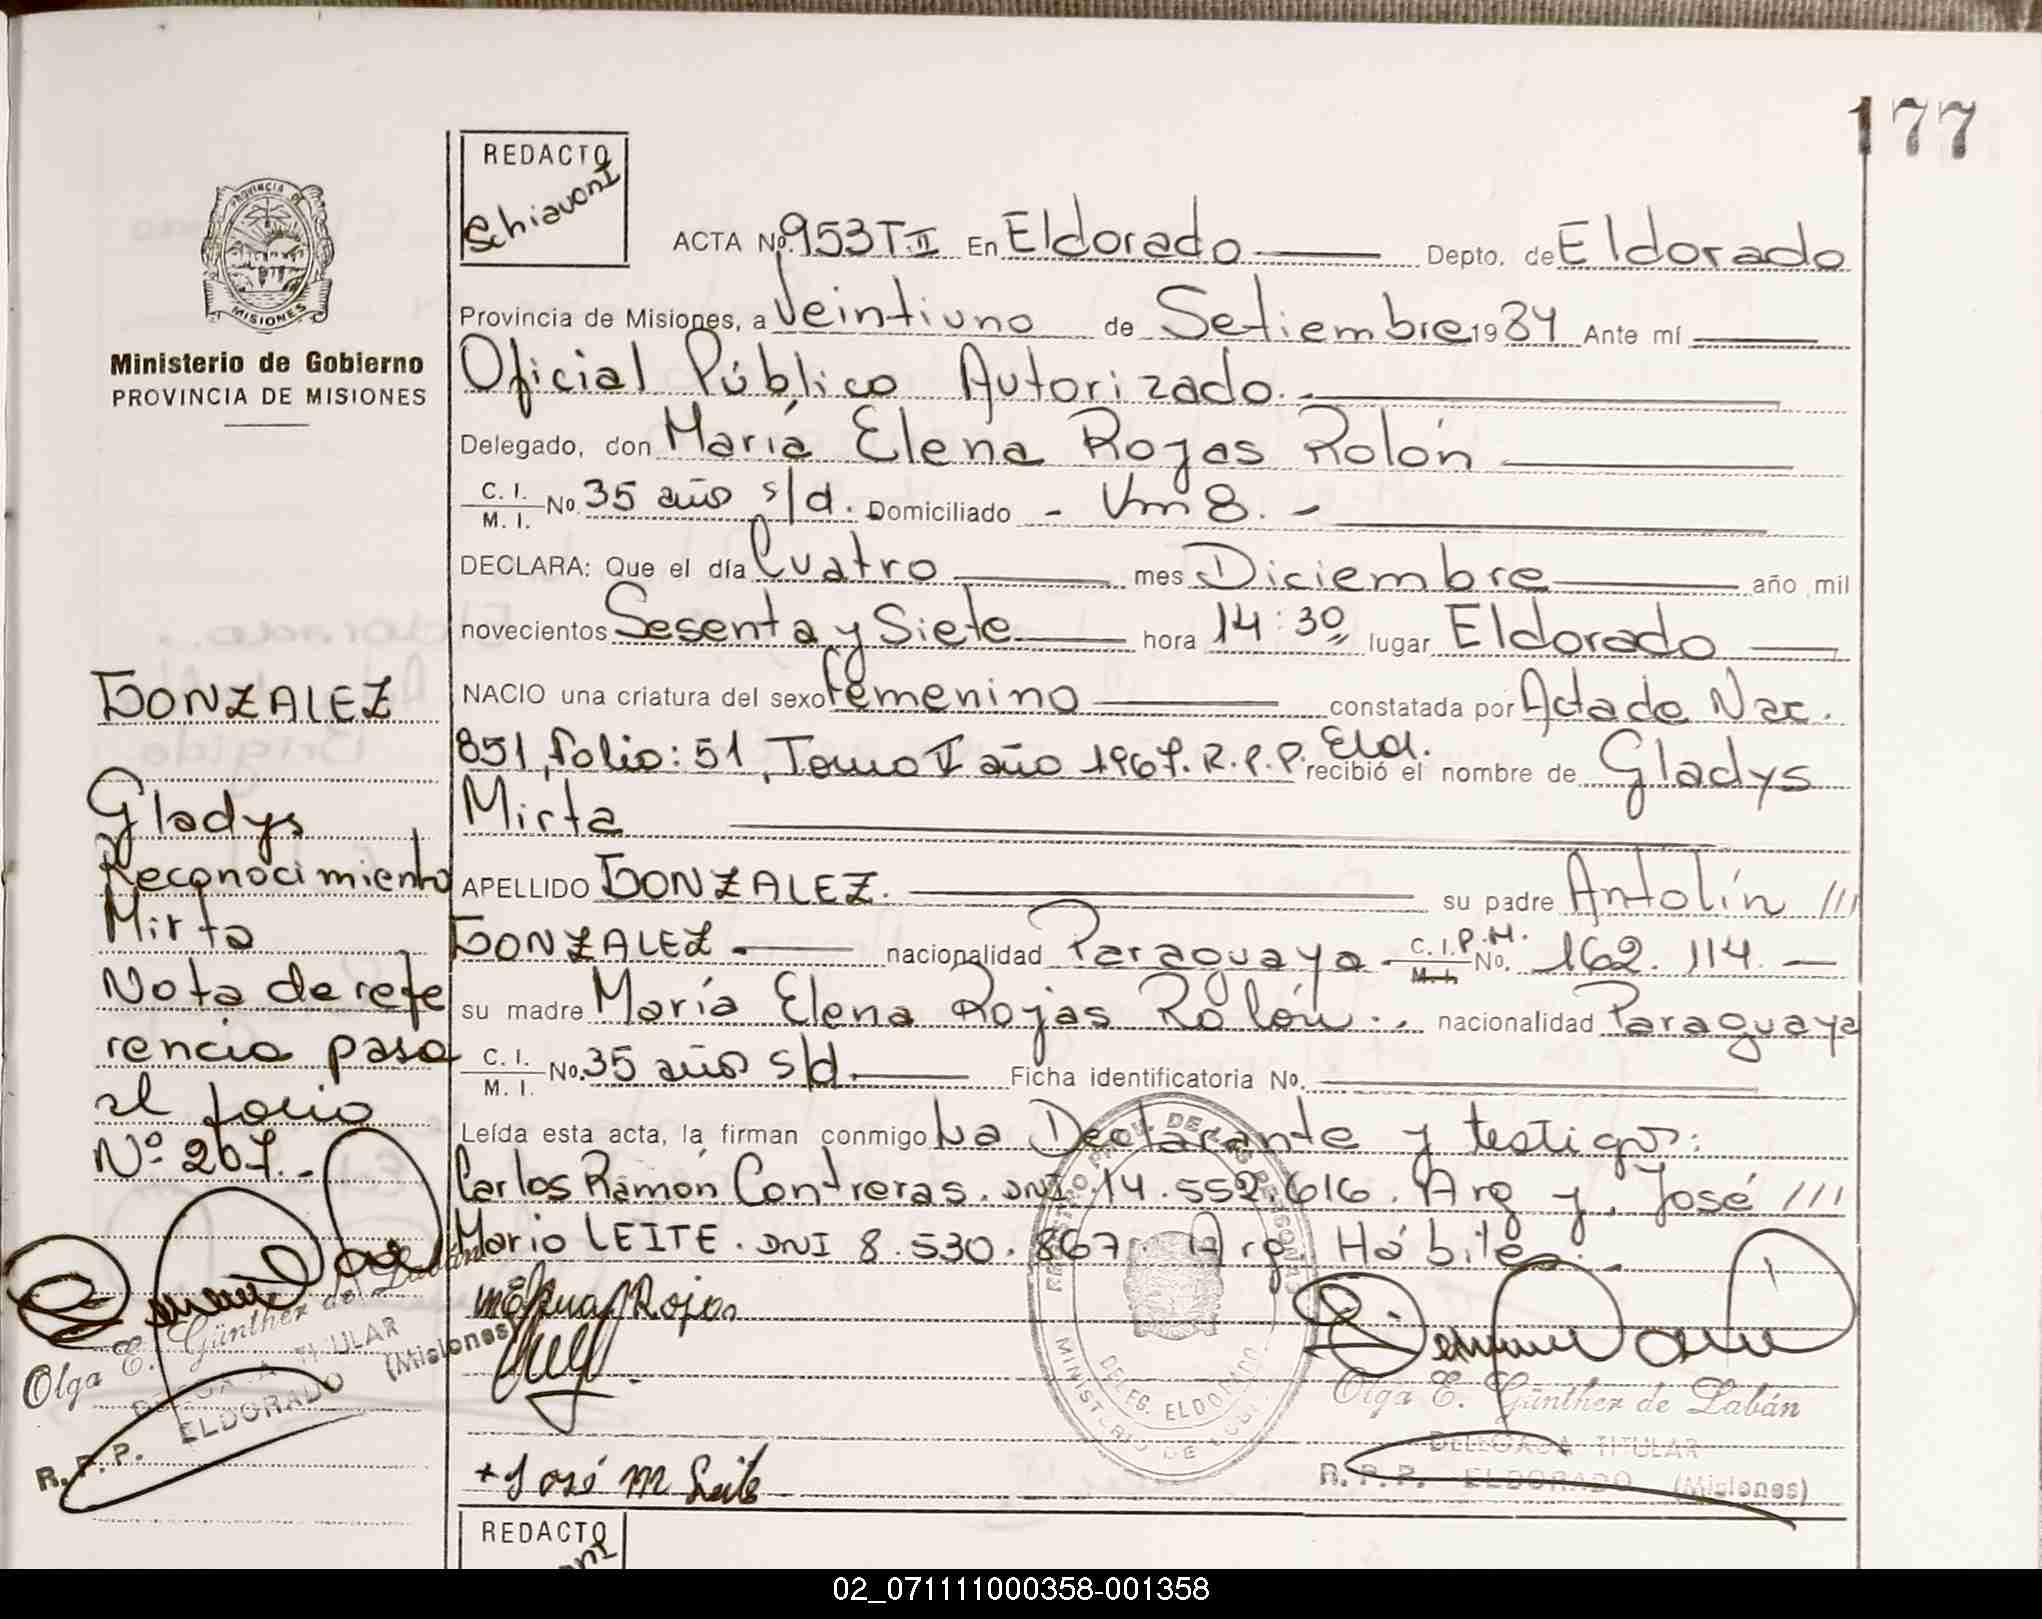 177
REDACTO
Schiavoni
PROVINCIA DE
MISIONES
Ministerio de Gobierno
PROVINCIA DE MISIONES
ACTA No. 953 T. II En Eldorado Depto. de Eldorado
Provincia de Misiones, a Veintiuno de Setiembre 1984 Ante mí
Oficial Público Autorizado.
Delegado, don María Elena Rojas Rolón
C. I. M. I. No. 35 año s/d. Domiciliado - Km 8. -
DECLARA: Que el día Cuatro mes Diciembre año mil
novecientos Sesenta y Siete hora 14:30 lugar Eldorado
NACIO una criatura del sexo femenino constatada por Acta de Nac.
851, folio: 51, Tomo II año 1967. R. P. P. Eld. recibió el nombre de Gladys
Mirta
APELLIDO GONZALEZ. su padre Antolín ///
GONZALEZ nacionalidad Paraguaya C. I. P. M. M. I. No. 162.114. —
su madre María Elena Rojas Rolón. nacionalidad Paraguaya
C. I. M. I. No. 35 años s/d. Ficha identificatoria No.
Leída esta acta, la firman conmigo La Declarante y testigos:
Carlos Ramón Contreras. DNI. 14.552.616. Arg y, José ///
Mario LEITE. DNI 8.530.867. Arg. Hábiles.
GONZALEZ
Gladys
Reconocimiento
Mirta
Nota de refe
rencia pasa
al folio
Nº 267.-
Olga E. Günther de Labán
DELEGADA TITULAR
R. P. P. ELDORADO (Misiones)
Rojas
DELEG. ELDORADO
+ José M Leite
Olga E. Günther de Labán
DELEGADA TITULAR
R. P. P. ELDORADO (Misiones)
REDACTO
02_071111000358-001358